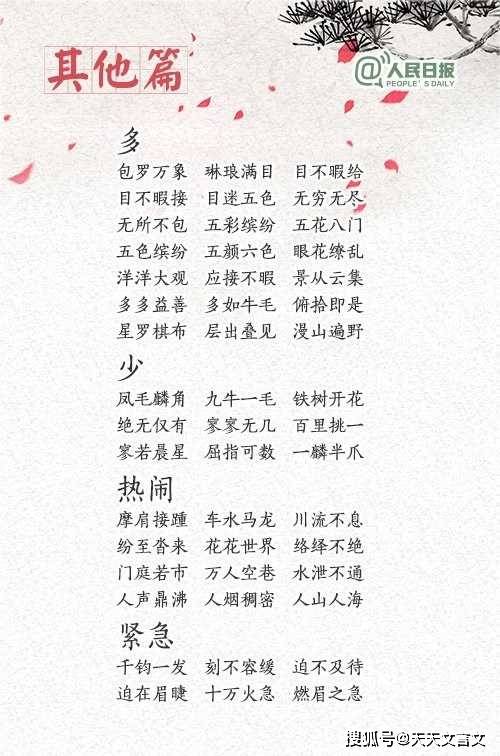 其他篇
@人民日报
PEOPLE'S DAILY
多
包罗万象 琳琅满目 目不暇给
目不暇接 目迷五色 无穷无尽
无所不包 五彩缤纷 五花八门
五色缤纷 五颜六色 眼花缭乱
洋洋大观 应接不暇 景从云集
多多益善 多如牛毛 俯拾即是
星罗棋布 层出叠见 漫山遍野
少
凤毛麟角 九牛一毛 铁树开花
绝无仅有 寥寥无几 百里挑一
寥若晨星 屈指可数 一麟半爪
热闹
摩肩接踵 车水马龙 川流不息
纷至沓来 花花世界 络绎不绝
门庭若市 万人空巷 水泄不通
人声鼎沸 人烟稠密 人山人海
紧急
千钧一发 刻不容缓 迫不及待
迫在眉睫 十万火急 燃眉之急
搜狐号@天天文言文